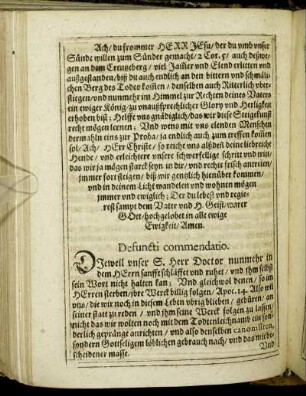 Ach / du frommer HERR JEsu / der du vmb vnser
Sünde willen zum Sünder gemacht / 2 Cor. 5 / auch deßwe-
gen an dem Creutzberg / viel Jamer vnd Elend erlitten vnd
außgestanden / biß du auch endlich an den bittern vnd schmäli-
chen Berg des Todes kom̃en / denselben auch Ritterlich vber-
stiegen / vnd nunmehr im Himmel zur Rechten deines Vaters
ein ewiger König / zu vnaußsprechlicher Glory vnd Herligkeit
erhoben bist: Helffe vns gnädiglich / das wir diese Steigekunst
recht mögen lernen: Vnd wenn mit vns elenden Menschen
dermahln eins zur Proba / ja endlich auch zum treffen kom̃en
sol / Ach / HErr Christe / so reiche vns alßdeñ deine liebreiche
Hende / vnd erleichtere vnsere schwerfellige schrit vnd
das wir ja mögen starck seyn in dir / vnd rechte frisch
jmmer fort steigen / biß wir gentzlich hienüber kommen /
vnd in deinem Liecht wandelen vnd wohnen mögen
immer vnd ewiglich; Der du lebest vnd regie-
rest sampt dem Vater vnd H. Geist / warer
GOtt / hochgelobet in alle ewige
Ewigkeit / Amen.
Defuncti commendatio.
DJeweil vnser S. Herr Doctor nunmehr in
dem HErrn sanfft schläffet vnd ruhet / vnd jhm selbst
sein Wort nicht halten kan; Vnd gleichwol denen / so im
HErren sterben / jhre Werck billig folgen / Apoc. 14. Also wil
vns / die wir noch in diesem Leben vbrig blieben / gebüren / an
seiner statt zu reden / vnd jhm seine Werck folgen zu lassen /
nicht das wir wolten noch mit dem Todtenleichnamb ein son-
derlich gepränge anrichten / vnd also denselben canonisiren,
sondern Gottseligem löblichen gebrauch nach / vnd das mit be-
scheidener masse. Vnd